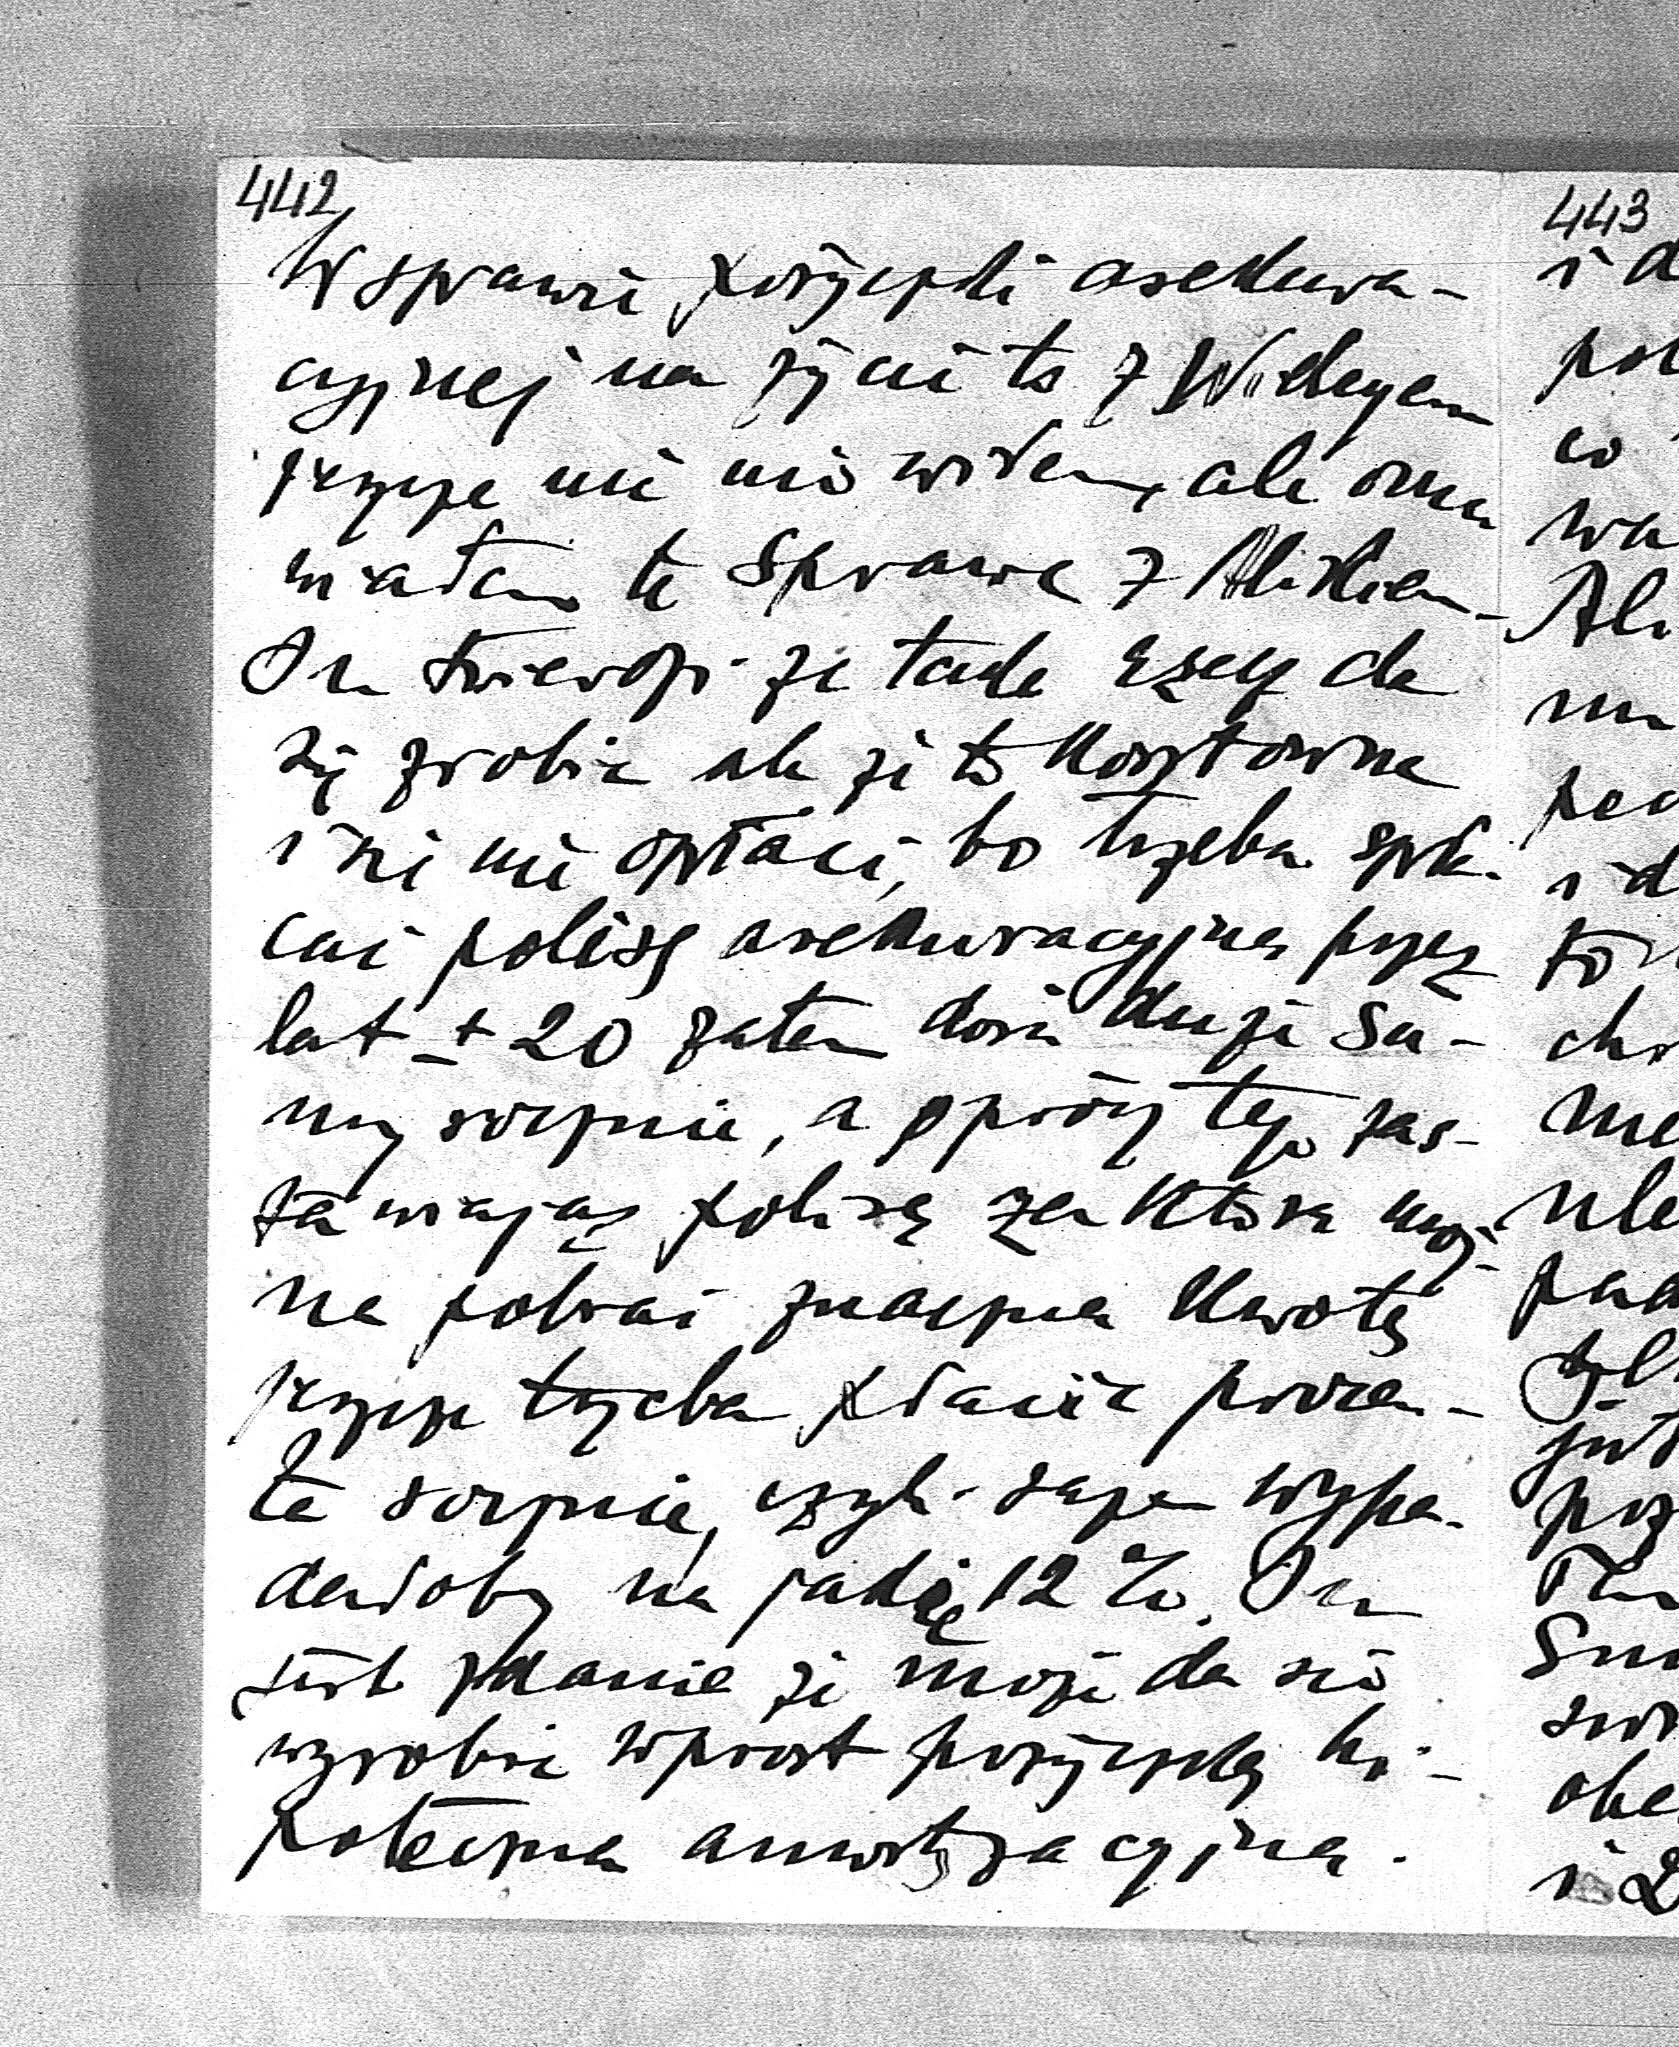 442
W sprawie pożyczki asekura-
cyjnej na życie to z
jeszcze nie nie widziałem, ale oma
wiałem tę sprawę z Alikiem-
On twierdzi że taka rzecz da
się zrobić ale że to kosztowne
i się nie opłaci, bo trzeba spła-
cać polisę asekuracyjną przez
lat ± 20 zatem dość duże su-
my rocznie, a oprócz tego zas-
tawiając polisę za którą moż-
na pobrać znaczną kwotę
jeszcze trzeba płacić procen-
ta rocznie, czyli razem wypa-
dałoby na jakieś 12 %. On
jest zdania że może da się
wyrobić wprost pożyczkę hi-
poteczną amortyzacyjną.
443
i d
pol
co
wa
Ali
nu
i d
chr
me
ule
i 2